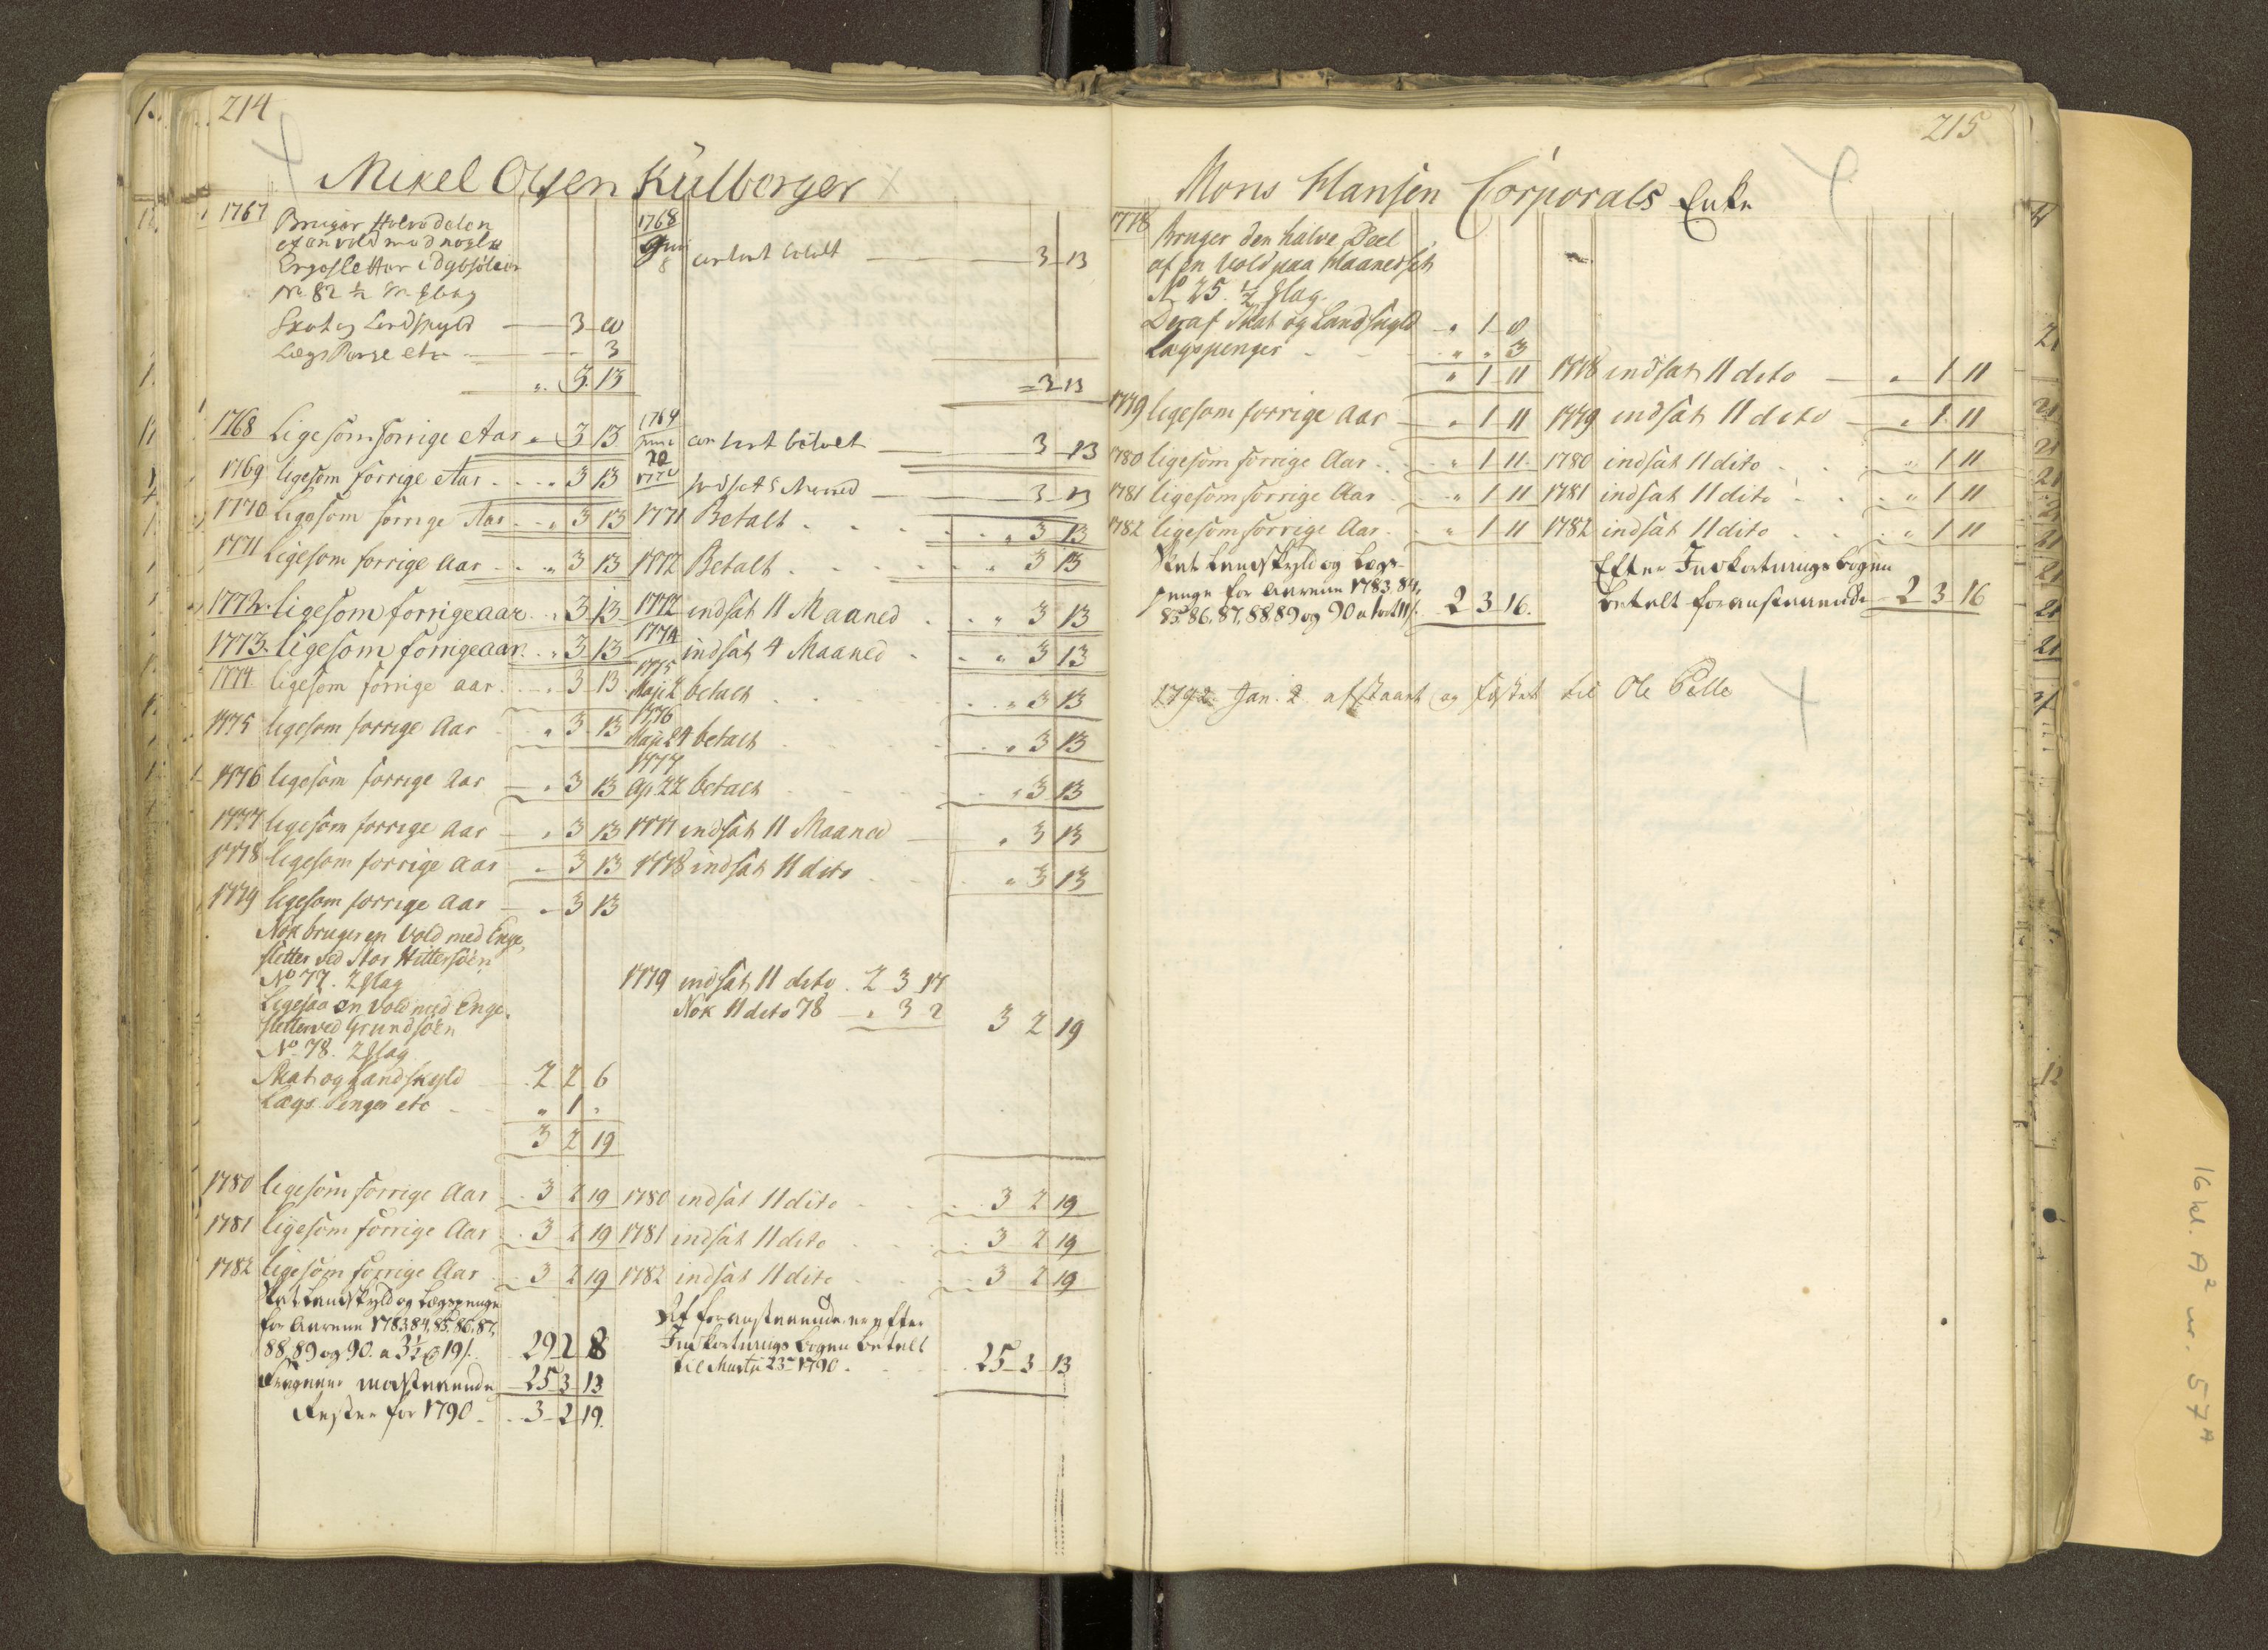 214
Mikel Olsen Külborger
1767 Bruger Halvedelen
af en vold med nogle
Engesletter i Dybsöleia
No 82 ½ M Slag
Skat og Landskyld 3 10
Lægs Penge etc 3
" 3 13
1768
Juni
8 contant betalt 3 13
3 13
1768 Ligesom forrige Aar " 3 13
1769
Juni
20 contant betalt 3 13
1769 ligesom forrige Aar " 3 13
1770 indsat 5 Maaned 3 13
1770 ligesom forrige Aar " 3 13
1771 Betalt " 3 13
1771 Ligesom forrige Aar " 3 13
1772 Betalt " 3 13
1772 ligesom forrige aar " 3 13
1772 indsat 11 Maaned " 3 13
1773 ligesom forrige aar " 3 13
1774 indsat 4 Maaned " 3 13
1774 ligesom forrige aar " 3 13
1775
Maji 2 betalt " 3 13
1775 ligesom forrige Aar " 3 13
1776
Maji 24 betalt " 3 13
1776 ligesom forrige Aar " 3 13
1777
Apr 22 betalt " 3 13
1777 ligesom forrige Aar " 3 13
1777 indsat 11 Maaned " 3 13
1778 ligesom forrige Aar " 3 13
1778 indsat 11 dito " 3 13
1779 ligesom forrige Aar " 3 13
Nok bruger en Vold med Enge
sletter ved Stor Hittersöen
No 77. 2 Slag
Ligesaa en Vold med Enge
sletter ved Grundsöen
No 78. 2 Slag
Skat og Landskyld 2 2 6
Lægs Penger etc " 1 "
3 2 19
1779 indsat 11 dito 2 3 17
Nok 11 dito 78 " 3 2 3 2 19
1780 ligesom forrige Aar 3 2 19
1780 indsat 11 dito 3 2 19
1781 ligesom forrige Aar 3 2 19
1781 indsat 11 dito 3 2 19
1782 ligesom forrige Aar 3 2 19
1782 indsat 11 dito 3 2 19
Skat Landskyld og Lægspenge
for Aarene 1783, 84, 85, 86, 87,
88, 89 og 90. a 3½ 19 s. 29 2 8
Fragaaer modstaaende 25 3 13
Rester for 1790 3 2 19
Af foranstaaende er efter
Indkortnings bogen betalt
til Martii 23 1790 25 3 13
215
Mons Hansen Corporals Enke
1778 Bruger den halve Deel
af en Vold paa Haanesset
No 25. ½ Slag.
Deraf Skat og Landskyld " 1 8
Lægspenger " " 3
" 1 11
1778 indsat 11 dito " 1 11
1779 ligesom forrige Aar " 1 11
1779 indsat 11 dito " 1 11
1780 ligesom forrige Aar " 1 11
1780 indsat 11 dito " 1 11
1781 ligesom forrige Aar " 1 11
1781 indsat 11 dito " 1 11
1782 ligesom forrige Aar " 1 11
1782 indsat 11 dito " 1 11
Skat Landskyld og Lægs-
penge for Aarene 1783, 84,
85, 86, 87, 88, 89 og 90 a 1 ort 11 s. 2 3 16
Efter Indkortnings bogen
betalt foranstaaende 2 3 16
1792 Jan. 2 afstaaet og fæstet til Ole Pelle
16 kl. A² nr. 57ᴬ